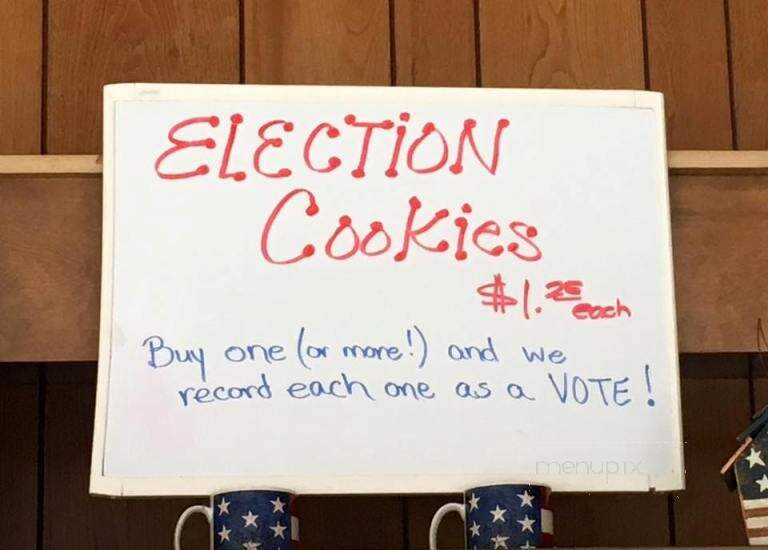 ELECTION
Cookies
$1.25 each
Buy one (or more!) and we
record each one as a VOTE!
menupix